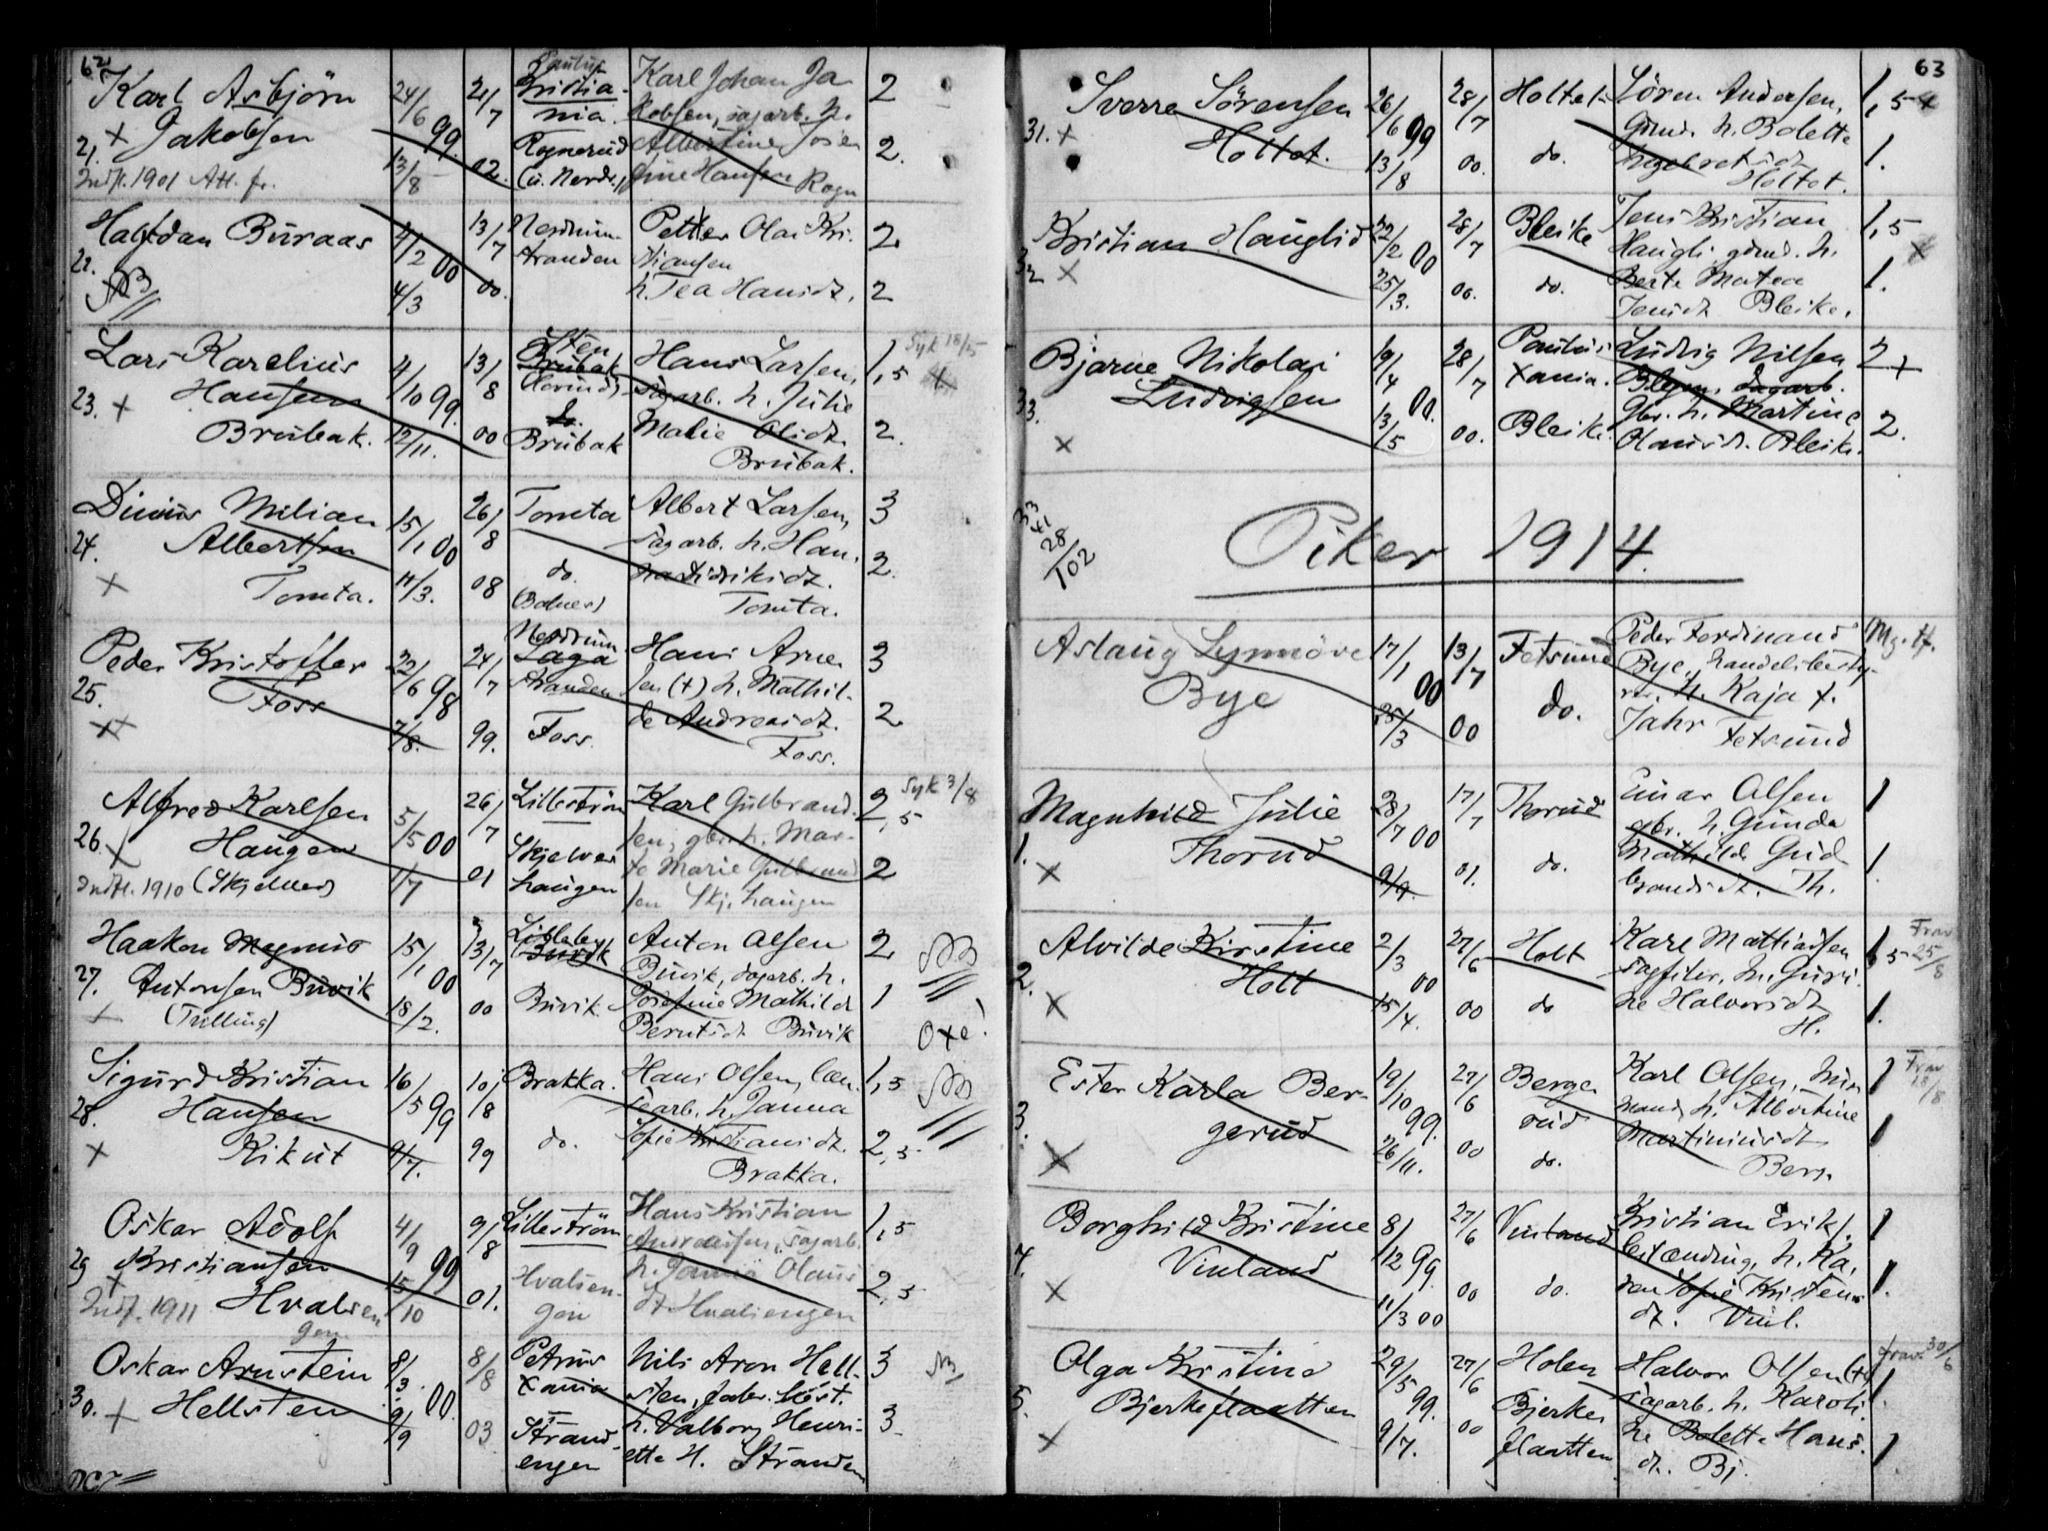 62
Karl Asbjørn
Jakobsen
21. +
Indfl. 1901 Att. fr.
24/6 99.
13/8
21/7
02.
Paulus
Kristia-
nia.
Rognerud
(u. Nordr.)
Karl Johan Ja
kobsen, dagarb. h.
Albertine Jose
fine Hansen Rogn
2
2.
Halfdan Buraas
22.
NB
4/2 00
4/3
13/7
00.
Nordrum
stranden
Petter Olai Kri-
stiansen
h. Tea Hansdt.
2
2
Lars Karelius
Hansen
23. +
Brubak.
4/10 99.
12/11.
13/8
00
Sten
Brubak
do.
Brubak
Hans Larsen,
dagarb. h. Julie
Malie Olsdt.
Brubak.
1,5
2.
Syk 18/5
+
Milian
Albertsen
24.
+
Tomta.
15/1 00
11/3.
26/8
08
Tomta
do.
(Bolner)
Albert Larsen,
sagarb. h. Han,
na Didriksdt.
Tomta.
3
2.
Peder Kristoffer
25.
Foss
++
22/6 98
7/8.
24/7
99.
Nordrum
Laga
stranden
Foss.
Hans Arne
sen (+) h. Mathil-
de Andreasdt.
Foss.
3
2
Alfred Karlsen
26. +
Haugen
Indfl. 1910 (Skjelver)
5/5 00
1/7
26/7
01
Lillestrøm
Skjelver
haugen
Karl Gulbrand-
sen, gbr. h. Mar-
te Marie Gulbrand
sen Skj. haugen
2,5
2
Syk 3/8
Haakon Magnus
27. Antonsen Buvik
+ (Tvilling)
15/1 00
18/2.
13/7
00
Lilleby
Buvik
Buvik.
Anton Olsen
Buvik, dagarb. h.
Josefine Mathilde
Berntsdt. Buvik
2
1
NB
Oxe!
Sigurd Kristian
28. Hansen
+ Kikut
16/5 99
9/7.
10/8
99
Brakka.
do.
Hans Olsen, læn-
searb. h. Janna
Sofie Kristiansdt.
Brakka.
1,5
2,5
NB
Oskar Adolf
29 Kristiansen
+
Indf. 1911 Hvalsen
gen
4/9 99
15/10
9/8
01.
Lillestrøm
Hvalsen-
gen
Hans Kristian
Andreassen, sagarb.
h. Janna Olaus
dt Hvalsengen
1,5
2,5
Oskar Arnstein
30. + Hellsten
8/3. 00.
9/9
8/8
03
Petrus
Xania
Strand-
engen
Nils Aron Hell-
sten, fabr. best.
h. Valborg Henri-
ette H. Stranden
3
3
NB
63
Sverre Sørensen
31. +
Holtet.
26/6 99
13/8
28/7
00.
Holtet
do.
Søren Andersen,
grmd. h. Bolette
Ingebretsdt
Holtet.
1,5
1.
+
Kristian Hauglid
32 +
22/2 00
25/3.
28/7
00.
Bleike
do.
Jens Kristian
Haugli, grmd. h.
Berte Matea
Jensdt Bleike.
1,5
1.
+
Bjarne Nikolai
Ludvigsen
33.
+
19/4 00.
13/5
28/7
00.
Paulus
Xania.
Bleike.
Ludvig Nilsen
Blegen, dagarb.
gbr. h. Martine
Olausdt. Bleike.
2 +
2.
33
41
28/102
Piker 1914.
Aslaug Synnøve
Bye
17/1 00
25/3
13/7
00
Fetsund
do.
Peder Ferdinand
Bye, handelsbesty-
rer. h. Kaja f.
Jahr Fetsund
Mg. H.
Magnhild Julie
1. Thorud
+
28/7 00
9/9.
17/7
01.
Thorud
do.
Einar Olsen
gbr. h. Gunda
Mathilde Gud
brandsdt. Th.
1
1.
Alvilde Kirstine
2. Holt
+
2/3 00
15/4.
27/6
00
Holt
do
Karl Mathiassen
sagfiler, h. Guri-
ne Halvorsdt
H.
1,5
1.
Frav 25/8
Ester Karla Ber-
gerud
3.
+
19/10 99.
26/11.
27/6
00
Berge
rud
do.
Karl Olsen, mur
mand, h. Albertine
Martiniusdt
Berg.
1
1
Frav 18/8
Borghild Kristine
4. Vinland
+
8/12 99.
11/3 00
27/6
00
Vinland
do.
Kristian Eriks.
h. Ka,
ren Sofie Kristens
dt. Vinl.
1
1.
Olga Kristine
5. Bjerkeflaatten
+
29/5 99.
9/7.
27/6
00
Holen
Bjerke
flaatten
Halvor Olsen (+)
sagarb. h. Karoli
ne Bolette Hans-
dt. Bj.
1.
1
frav. 30/6